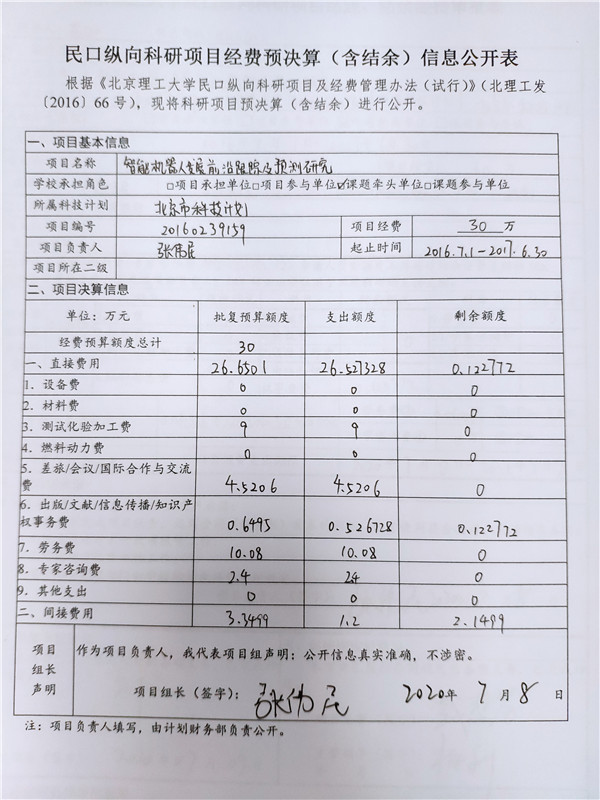 民口纵向科研项目经费预决算（含结余）信息公开表
根据《北京理工大学民口纵向科研项目及经费管理办法（试行）》（北理工发
〔2016〕66号），现将科研项目预决算（含结余）进行公开。
一、项目基本信息
项目名称 智能机器人发展前沿跟踪及预测研究
学校承担角色 □项目承担单位□项目参与单位☑课题牵头单位□课题参与单位
所属科技计划 北京市科技计划
项目编号 20160239159 项目经费 30 万
项目负责人 张伟民 起止时间 2016.7.1-2017.6.30
项目所在二级
二、项目决算信息
单位：万元 批复预算额度 支出额度 剩余额度
经费预算额度总计 30
一、直接费用 26.6501 26.527328 0.122772
1. 设备费 0 0 0
2. 材料费 0 0 0
3. 测试化验加工费 9 9 0
4. 燃料动力费 0 0 0
5. 差旅/会议/国际合作与交流
费 4.5206 4.5206 0
6. 出版/文献/信息传播/知识产
权事务费 0.6495 0.526728 0.122772
7. 劳务费 10.08 10.08 0
8. 专家咨询费 2.4 2.4 0
9. 其他支出 0 0 0
二、间接费用 3.3499 1.2 2.1499
项目
组长
声明
作为项目负责人，我代表项目组声明：公开信息真实准确，不涉密。
项目组长（签字）： 张伟民 2020年 7 月 8 日
注：项目负责人填写，由计划财务部负责公开。